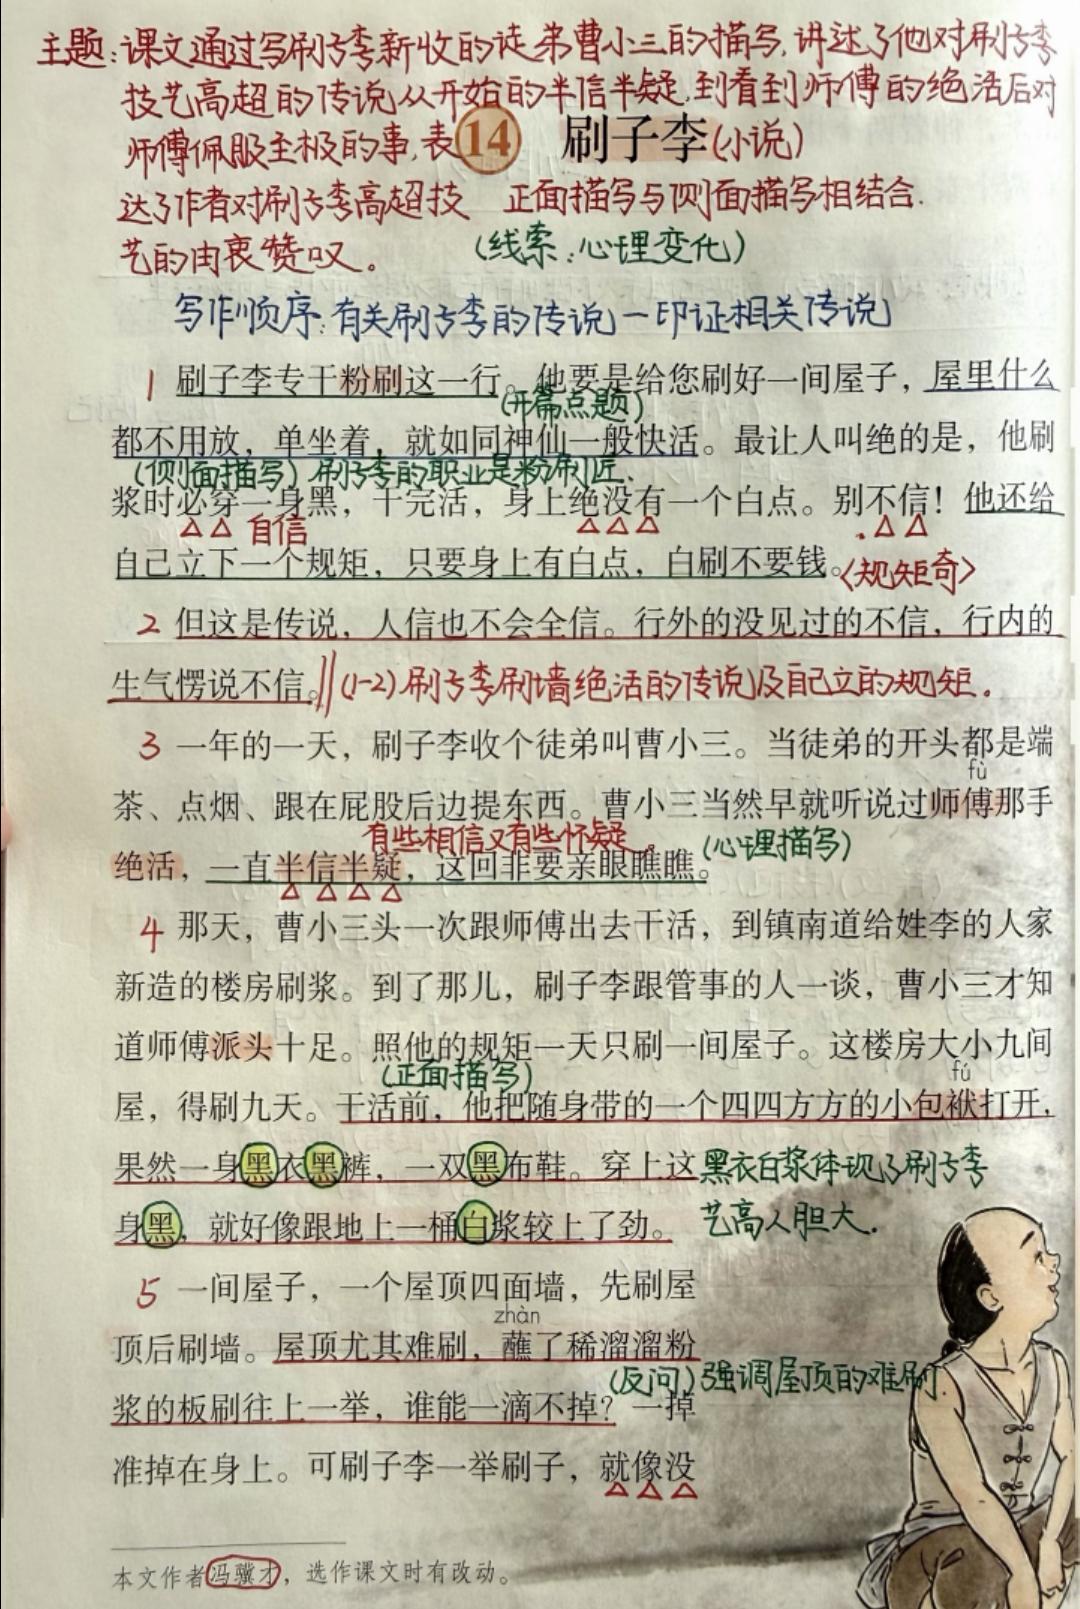 主题:课文通过写刷子李新收的徒弟曹小三的描写,讲述了他对刷子李
技艺高超的传说从开始的半信半疑,到看到师傅的绝活后对
师傅佩服至极的事,表
14 刷子李(小说)
达了作者对刷子李高超技
正面描写与侧面描写相结合.
艺的由衷赞叹。
(线索:心理变化)
写作顺序:有关刷子李的传说—印证相关传说
1 刷子李专干粉刷这一行。他要是给您刷好一间屋子,屋里什么
(开篇点题)
都不用放,单坐着,就如同神仙一般快活。最让人叫绝的是,他刷
(侧面描写)刷子李的职业是粉刷匠.
浆时必穿一身黑,干完活,身上绝没有一个白点。别不信!他还给
自信
自己立下一个规矩,只要身上有白点,白刷不要钱。
〈规矩奇〉
2 但这是传说,人信也不会全信。行外的没见过的不信,行内的
生气愣说不信。∥(1-2)刷子李刷墙绝活的传说及自己立的规矩.
3 一年的一天,刷子李收个徒弟叫曹小三。当徒弟的开头都是端
fù
茶、点烟、跟在屁股后边提东西。曹小三当然早就听说过师傅那手
有些相信又有些怀疑。
(心理描写)
绝活,一直半信半疑,这回非要亲眼瞧瞧。
4 那天,曹小三头一次跟师傅出去干活,到镇南道给姓李的人家
新造的楼房刷浆。到了那儿,刷子李跟管事的人一谈,曹小三才知
道师傅派头十足。照他的规矩一天只刷一间屋子。这楼房大小九间
(正面描写)
fú
屋,得刷九天。干活前,他把随身带的一个四四方方的小包袱打开,
果然一身黑衣黑裤,一双黑布鞋。穿上这
黑衣白浆体现了刷子李
身黑,就好像跟地上一桶白浆较上了劲。
艺高人胆大.
5 一间屋子,一个屋顶四面墙,先刷屋
zhàn
顶后刷墙。屋顶尤其难刷,蘸了稀溜溜粉
(反问)强调屋顶的难刷.
浆的板刷往上一举,谁能一滴不掉?一掉
准掉在身上。可刷子李一举刷子,就像没
本文作者冯骥才,选作课文时有改动。